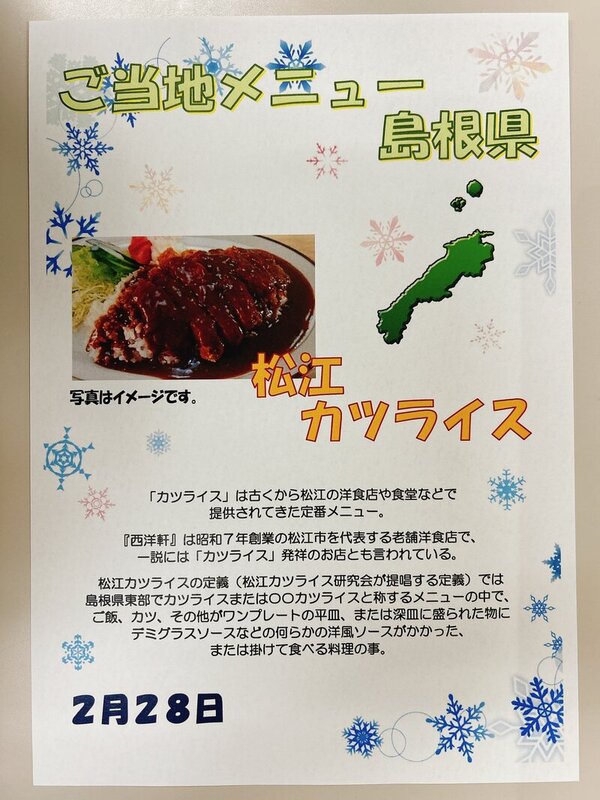 ご当地メニュー
島根県
写真はイメージです。
松江
カツライス
「カツライス」は古くから松江の洋食店や食堂などで
提供されてきた定番メニュー。
『西洋軒』は昭和７年創業の松江市を代表する老舗洋食店で、
一説には「カツライス」発祥のお店とも言われている。
松江カツライスの定義（松江カツライス研究会が提唱する定義）では
島根県東部でカツライスまたは〇〇カツライスと称するメニューの中で、
ご飯、カツ、その他がワンプレートの平皿、または深皿に盛られた物に
デミグラスソースなどの何らかの洋風ソースがかかった、
または掛けて食べる料理の事。
２月２８日